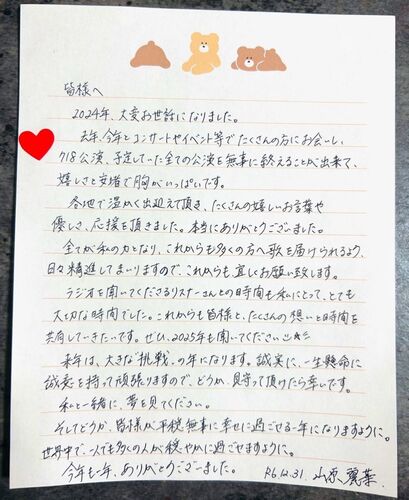 皆様へ
2024年、大変お世話になりました。
去年、今年とコンサートやイベント等でたくさんの方にお会いし、
718公演、予定していた全ての公演を無事に終えることが出来て、
嬉しさと安堵で胸がいっぱいです。
各地で温かく出迎えて頂き、たくさんの嬉しいお言葉や
優しさ、応援を頂きました。本当にありがとうございました。
全てが私の力となり、これからも多くの方へ歌を届けられるよう、
日々精進してまいりますので、これからも宜しくお願い致します。
ラジオを聞いてくださるリスナーさんとの時間も私にとって、とても
大切な時間でした。これからも皆様と、たくさんの想いと時間を
共有していきたいです。ぜひ、2025年も聞いてください
来年は、大きな"挑戦"の年になります。誠実に、一生懸命に
誠意を持って頑張りますので、どうか、見守って頂けたら幸いです。
私と一緒に、夢を見てください。
そしてどうか、皆様が平穏無事に幸せに過ごせる一年になりますように。
世界中で、一人でも多くの人が穏やかに過ごせますように。
今年も一年、ありがとうございました。 R6.12.31.